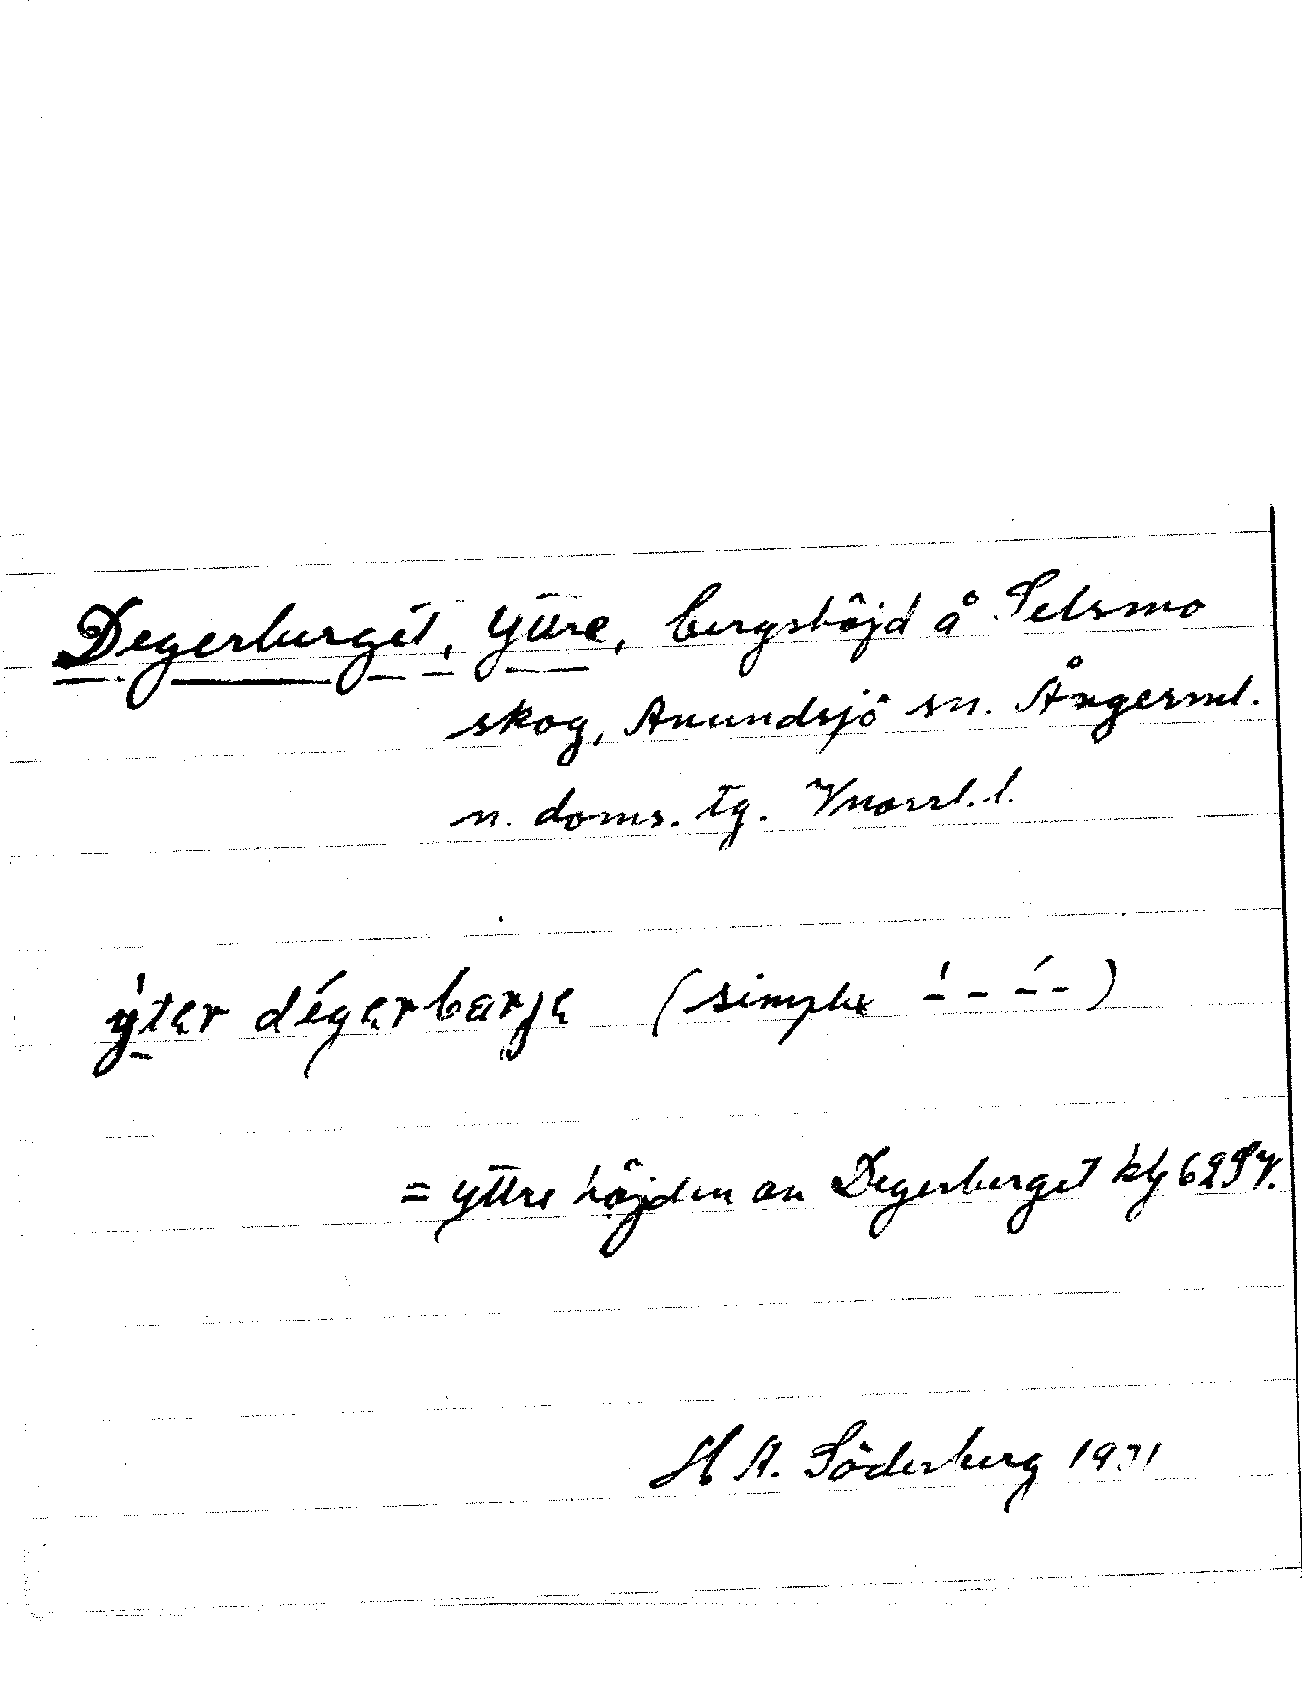 Degerberget, Yttre, bergshöjd å Selsmo
skog, Anundsjö sn. Ångerml.
n. doms. tg. Vnorrl. l.
ýtər dégərbärjə (simplex
= yttre höjden av Degerberget kbl
H A. Söderberg 1931